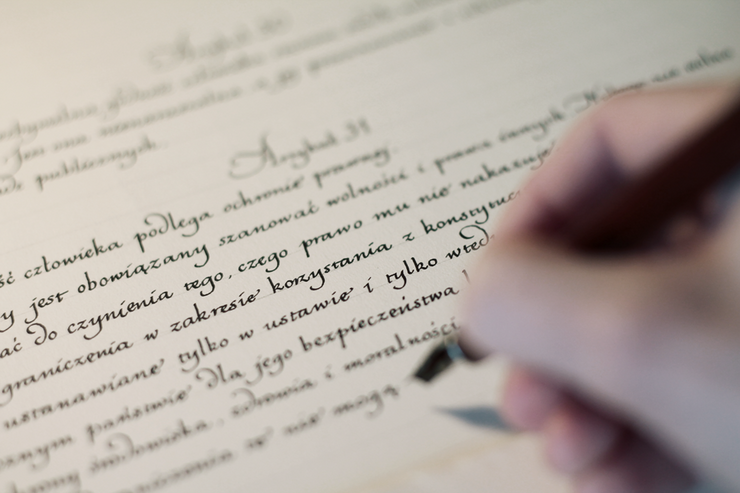 Artykuł 30
Jest ona nienaruszalna, a jej poszanowanie i
publicznych.
Artykuł 31
ść człowieka podlega ochronie prawnej.
y jest obowiązany szanować wolności i prawa innych. Nikogo nie wolno
ać do czynienia tego, czego prawo mu nie nakazuje
graniczenia w zakresie korzystania z konstytuc
ustanawiane tylko w ustawie i tylko wted
znym państwie dla jego bezpieczeństwa
rony środowiska, zdrowia i moralności
niczenia te nie mogą